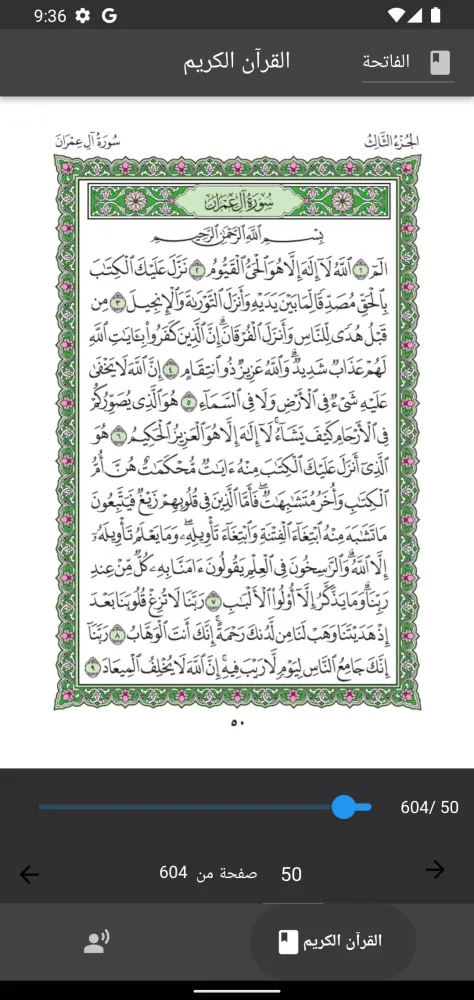 9:36
القرآن الكريم
الفاتحة
سُورَةُ آلِ عِمْرَانَ
الجُزْءُ الثَّالِثُ
سُورَةُ آلِ عِمْرَانَ
بِسْمِ اللَّهِ الرَّحْمَٰنِ الرَّحِيمِ
الٓمٓ ۝١ ٱللَّهُ لَآ إِلَٰهَ إِلَّا هُوَ ٱلْحَىُّ ٱلْقَيُّومُ ۝٢ نَزَّلَ عَلَيْكَ ٱلْكِتَٰبَ
بِٱلْحَقِّ مُصَدِّقًا لِّمَا بَيْنَ يَدَيْهِ وَأَنزَلَ ٱلتَّوْرَىٰةَ وَٱلْإِنجِيلَ ۝٣ مِن
قَبْلُ هُدًى لِّلنَّاسِ وَأَنزَلَ ٱلْفُرْقَانَ ۗ إِنَّ ٱلَّذِينَ كَفَرُوا۟ بِـَٔايَٰتِ ٱللَّهِ
لَهُمْ عَذَابٌ شَدِيدٌ ۗ وَٱللَّهُ عَزِيزٌ ذُو ٱنتِقَامٍ ۝٤ إِنَّ ٱللَّهَ لَا يَخْفَىٰ
عَلَيْهِ شَىْءٌ فِى ٱلْأَرْضِ وَلَا فِى ٱلسَّمَآءِ ۝٥ هُوَ ٱلَّذِى يُصَوِّرُكُمْ
فِى ٱلْأَرْحَامِ كَيْفَ يَشَآءُ ۚ لَآ إِلَٰهَ إِلَّا هُوَ ٱلْعَزِيزُ ٱلْحَكِيمُ ۝٦ هُوَ
ٱلَّذِىٓ أَنزَلَ عَلَيْكَ ٱلْكِتَٰبَ مِنْهُ ءَايَٰتٌ مُّحْكَمَٰتٌ هُنَّ أُمُّ
ٱلْكِتَٰبِ وَأُخَرُ مُتَشَٰبِهَٰتٌ ۖ فَأَمَّا ٱلَّذِينَ فِى قُلُوبِهِمْ زَيْغٌ فَيَتَّبِعُونَ
مَا تَشَٰبَهَ مِنْهُ ٱبْتِغَآءَ ٱلْفِتْنَةِ وَٱبْتِغَآءَ تَأْوِيلِهِۦ ۗ وَمَا يَعْلَمُ تَأْوِيلَهُۥٓ
إِلَّا ٱللَّهُ ۗ وَٱلرَّٰسِخُونَ فِى ٱلْعِلْمِ يَقُولُونَ ءَامَنَّا بِهِۦ كُلٌّ مِّنْ عِندِ
رَبِّنَا ۗ وَمَا يَذَّكَّرُ إِلَّآ أُو۟لُوا۟ ٱلْأَلْبَٰبِ ۝٧ رَبَّنَا لَا تُزِغْ قُلُوبَنَا بَعْدَ
إِذْ هَدَيْتَنَا وَهَبْ لَنَا مِن لَّدُنكَ رَحْمَةً ۚ إِنَّكَ أَنتَ ٱلْوَهَّابُ ۝٨ رَبَّنَآ
إِنَّكَ جَامِعُ ٱلنَّاسِ لِيَوْمٍ لَّا رَيْبَ فِيهِ ۚ إِنَّ ٱللَّهَ لَا يُخْلِفُ ٱلْمِيعَادَ ۝٩
٥٠
604/ 50
50 صفحة من 604
القرآن الكريم